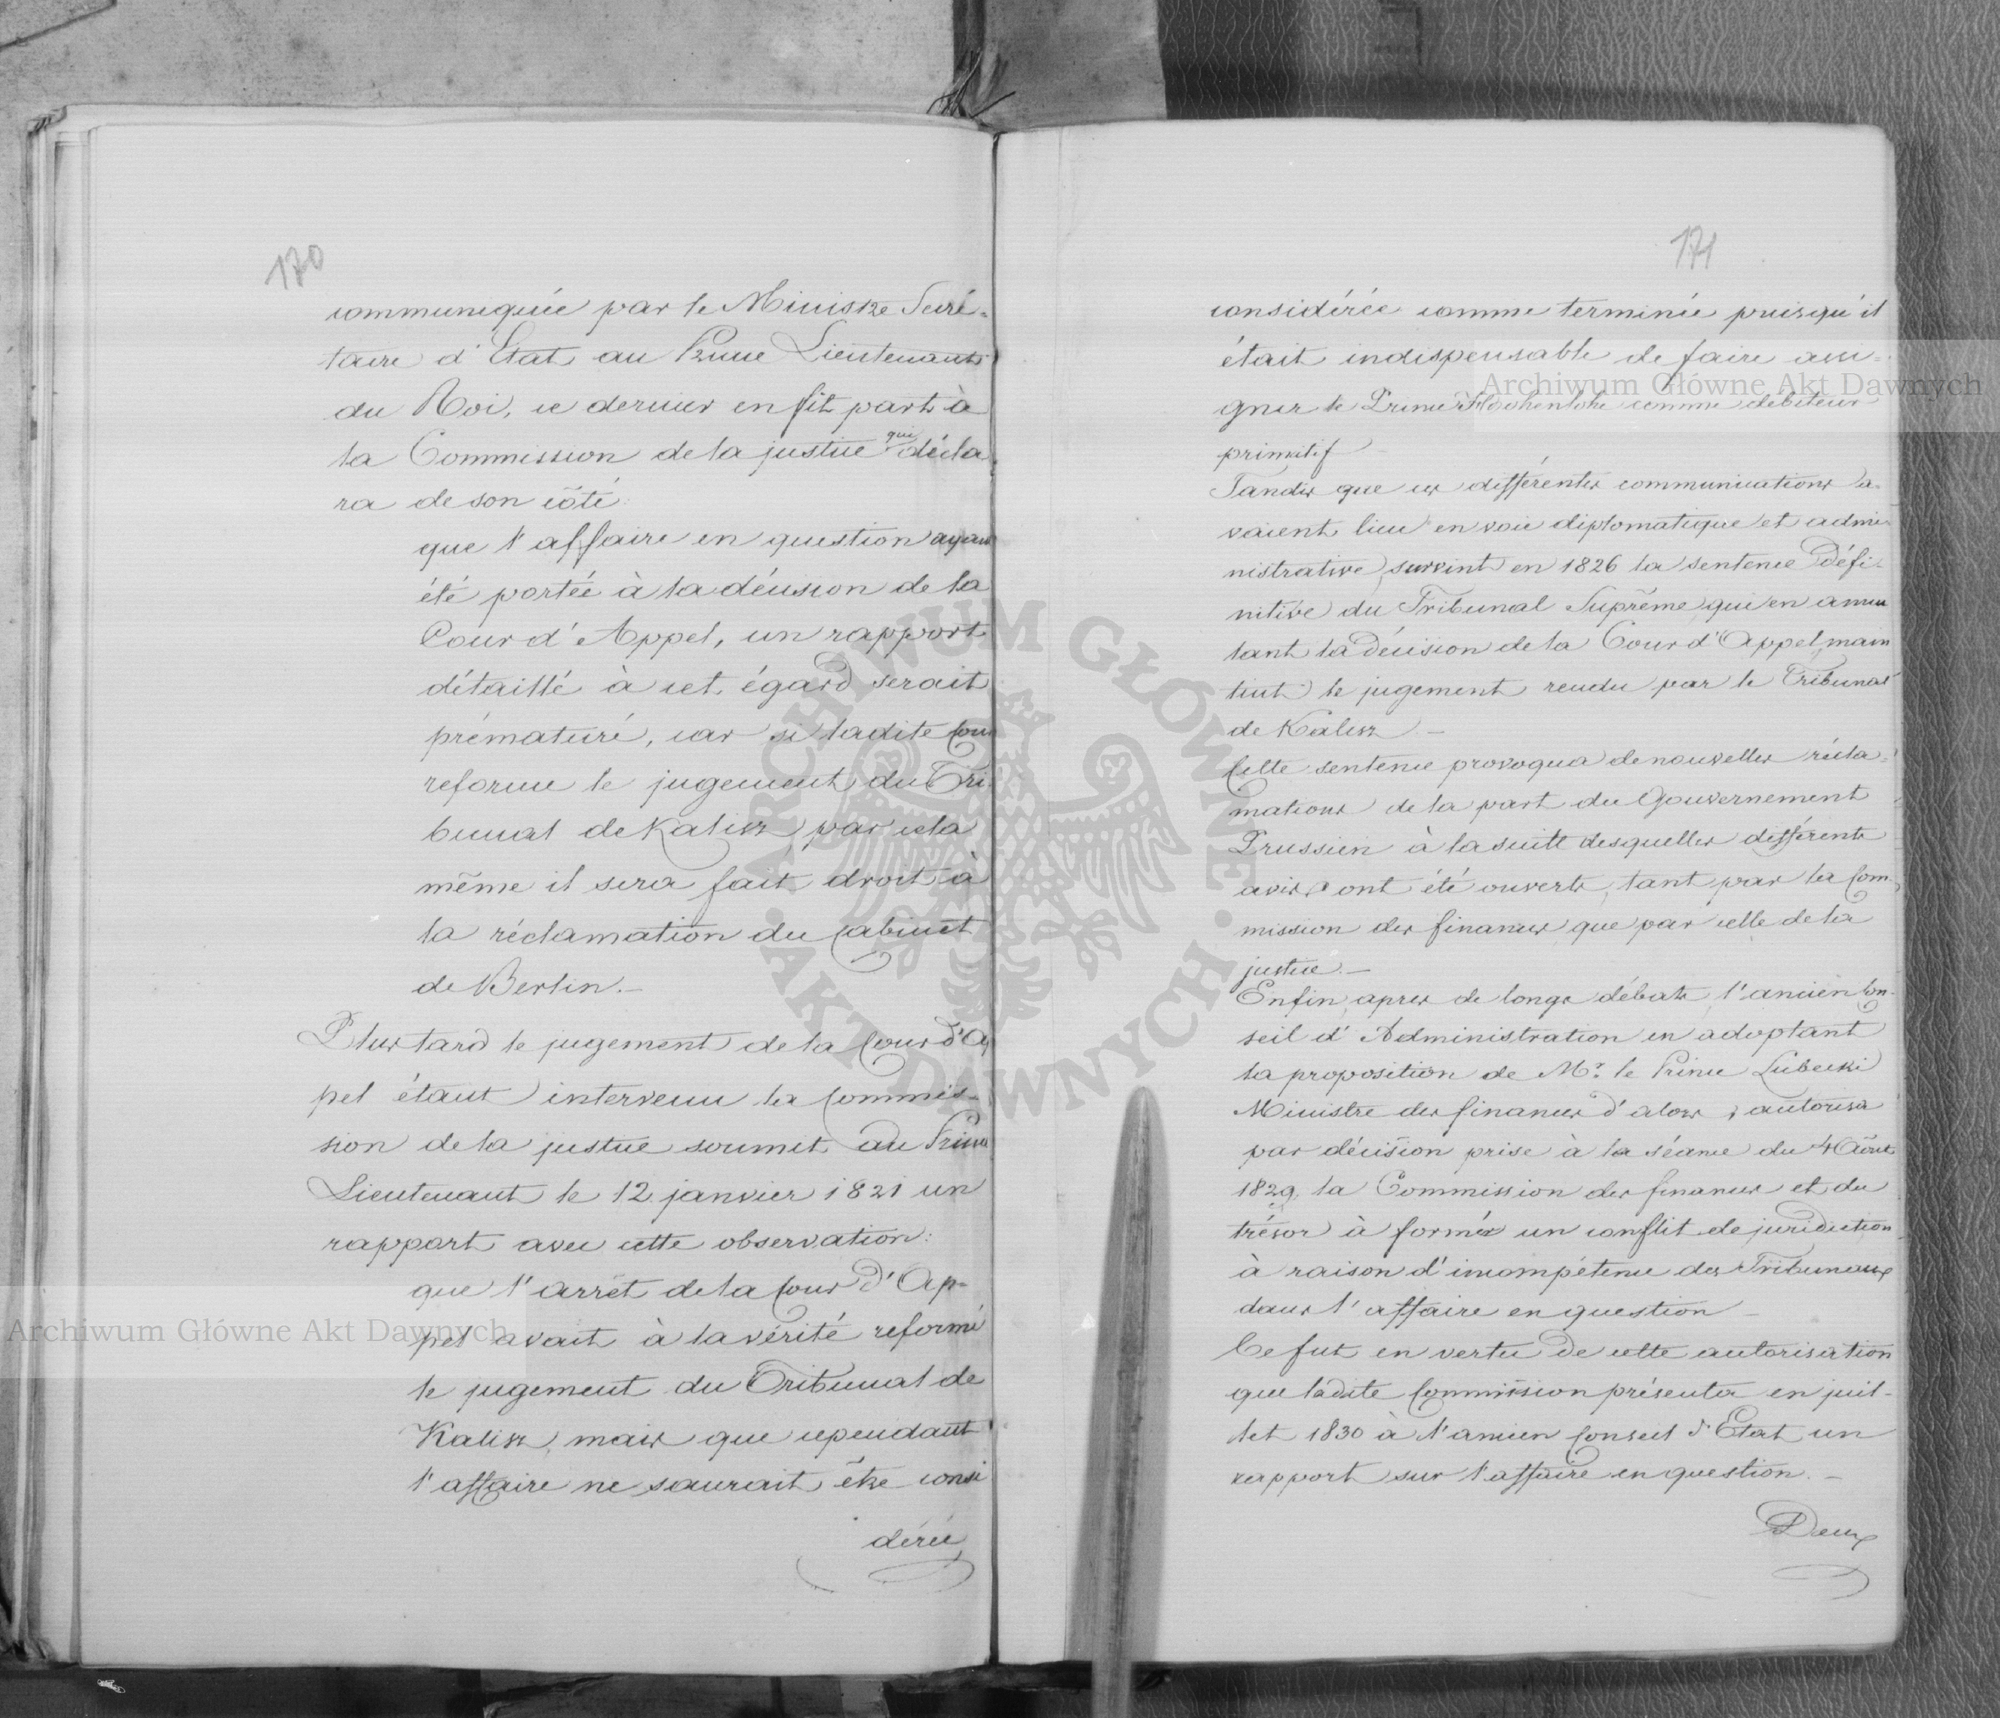 170
communiquée par le Ministre Secré-
taire d'Etat au Prince Lieutenant
du Roi, ce dernier en fit part à
la Commission de la justice qui décla
ra de son côté:
que l'affaire en question ayant
été portée à la décision de la
Cour d'Appel, un rapport
détaillé à cet égard serait
prématuré, car si ladite Cour
reforme le jugement du Tri
bunal de Kalisz, par cela
même il sera fait droit à
la réclamation du Cabinet
de Berlin.—
Plus tard le jugement de la Cour d'Ap
pel étant intervenu la Commis-
sion de la justice soumet au Prince
Lieutenant le 12 janvier 1821 un
rapport avec cette observation:
que l'arrêt de la Cour d'Ap-
pel avait à la vérité reformé
le jugement du Tribunal de
Kalisz, mais que cependant
l'affaire ne saurait être consi
dérée
171
considérée comme terminée puisqu'il
était indispensable de faire assi-
gner le Prince Hohenlohe comme débiteur
primitif
Tandis que ces différentes communications a-
vaient lieu en voie diplomatique et admi-
nistrative, survint en 1826 la sentence défi-
nitive du Tribunal Suprême qui en annu
lant la décision de la Cour d'Appel, main
tint le jugement rendu par le Tribunal
de Kalisz —
Cette sentence provoqua de nouvelles récla-
mations de la part du Gouvernement
Prussien à la suite desquelles différents
avis ont été ouverts, tant par la Com-
mission des finances que par celle de la
justice.—
Enfin, après de longs débats, l'ancien Con-
seil d'Administration en adoptant
la proposition de Mr. le Prince Lubecki
Ministre des finances d'alors, autorisa
par décision prise à la séance du 4 Août
1829, la Commission des finances et du
trésor à former un conflit de juridiction
à raison d'incompétence des Tribunaux
dans l'affaire en question —
Ce fut en vertu de cette autorisation
que ladite Commission présenta en juil-
let 1830 à l'ancien Conseil d'Etat un
rapport sur l'affaire en question. —
Deux
Archiwum Główne Akt Dawnych
Archiwum Główne Akt Dawnych
ARCHIWUM GŁÓWNE · AKT DAWNYCH ·